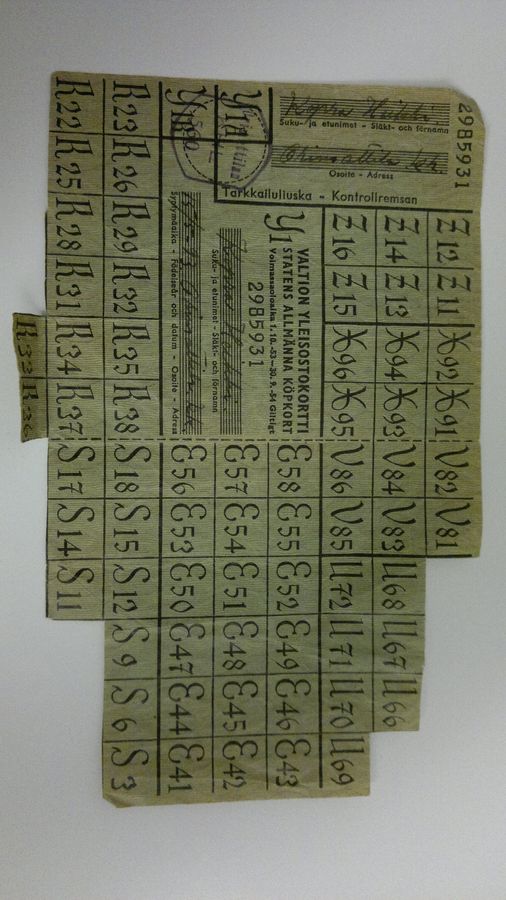 29B5931
Suku- ja etunimet - Släkt- och förnamn
Osoite - Adress
Tarkkailuliuska - Kontrollremsan
Y1A
Y1B
Z12 Z11 Ж92 Ж91 V82 V81
Z14 Z13 Ж94 Ж93 V84 V83 U68 U67 U66
Z16 Z15 Ж96 Ж95 V86 V85 U72 U71 U70 U69
VALTION YLEISOSTOKORTTI
STATENS ALLMÄNNA KÖPKORT
Voimassaoloaika 1. 10. -53—30. 9. -54 Giltigt
Y1 29B5931
Suku- ja etunimet - Släkt- och förnamn
Syntymäaika - Födelseår och datum - Osoite - Adress
E58 E55 E52 E49 E46 E43
E57 E54 E51 E48 E45 E42
E56 E53 E50 E47 E44 E41
R23 R26 R29 R32 R35 R38 S18 S15 S12 S9 S6 S3
R22 R25 R28 R31 R34 R37 S17 S14 S11
R33 R36